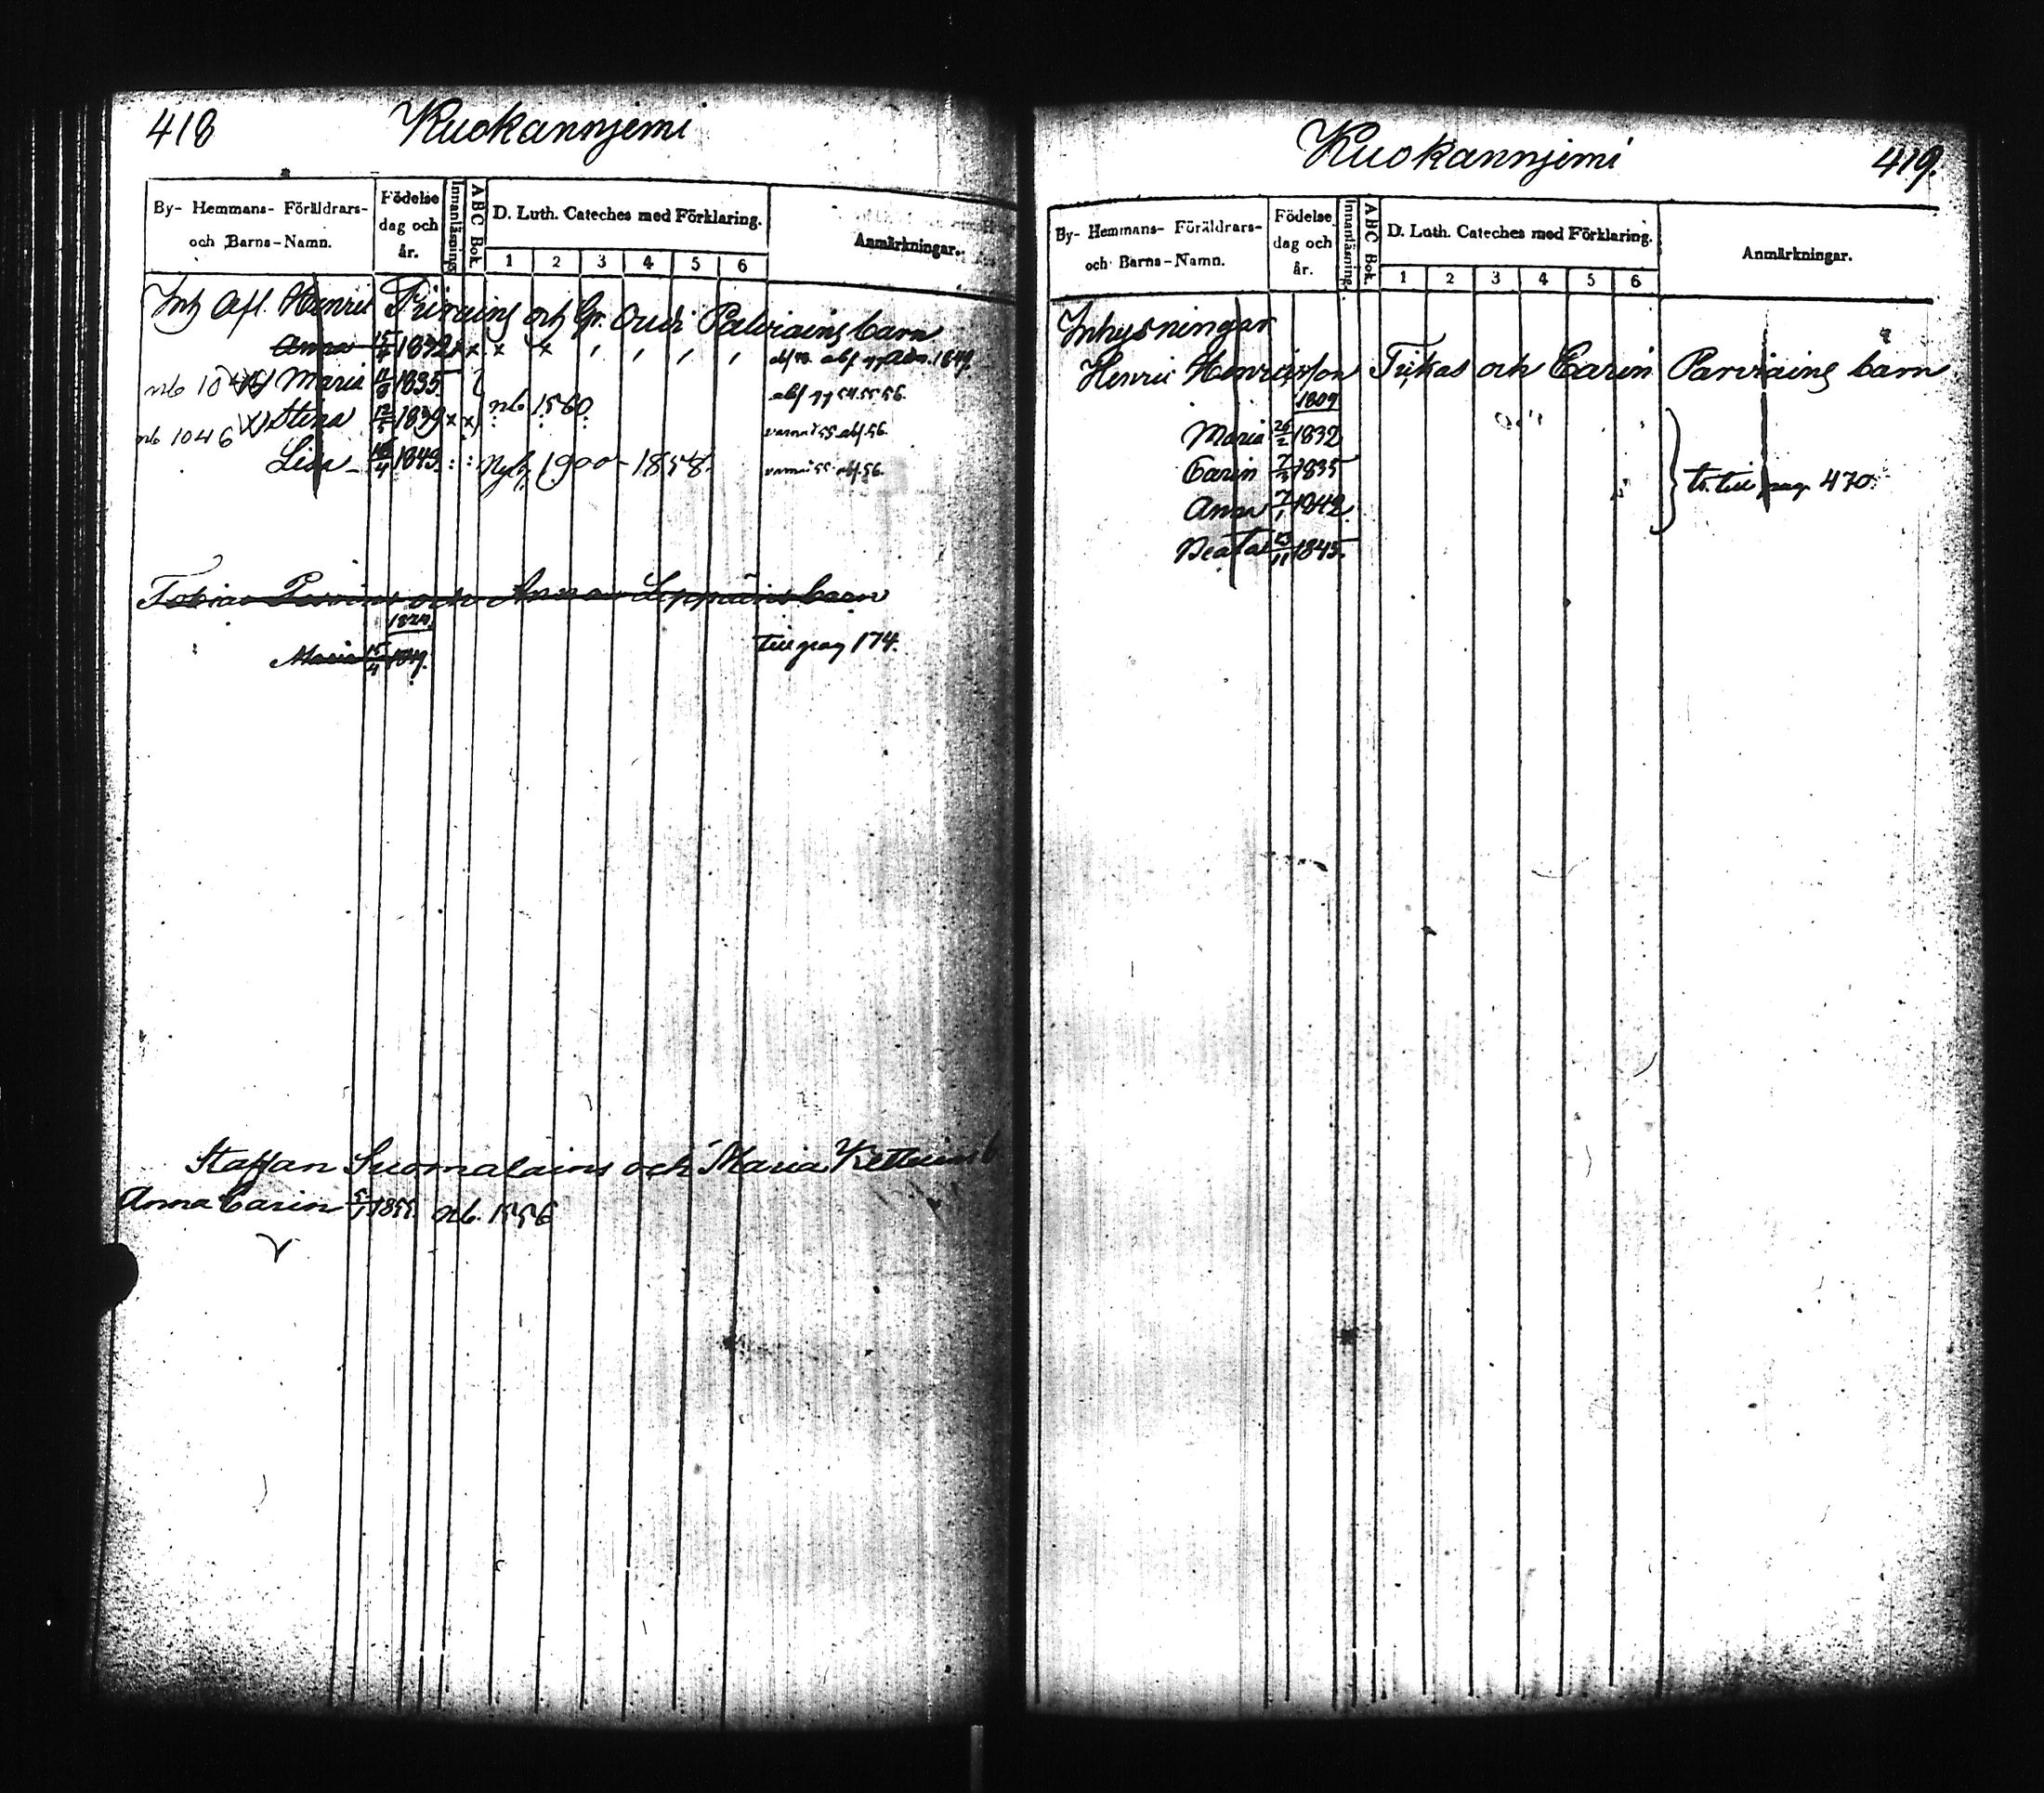 418 Kuokannjemi
By- Hemmans- Föräldrars- och Barns-Namn. Födelse dag och år. Innanläsning. ABC Bok. D. Luth. Cateches med Förklaring. 1 2 3 4 5 6 Anmärkningar.
Inh Afl. Henric och Gr. Palviains barn
Anna 1832 x x x x
Maria 1835
nb 1046 Stina 12 1839 x x nb 1560
Lisa 4 1843 Nyb. 1900-1858.
Tobias och Anna Leppäins barn
1824.
Maria 15/4 1849. till pag 174.
Staffan Suomalains och Maria
Anna Carin 1855. nb. 1556
Kuokannjemi 419.
By- Hemmans- Föräldrars- och Barns-Namn. Födelse dag och år. Innanläsning. ABC Bok. D. Luth. Cateches med Förklaring. 1 2 3 4 5 6 Anmärkningar.
Inhysningar
Henric Henricsson Tiikas och Carin Parviains barn
1809
Maria 26/2 1832
Carin 1835
Anna 7/1 1842
Beata 13/11 1845. tr. till pag. 470.